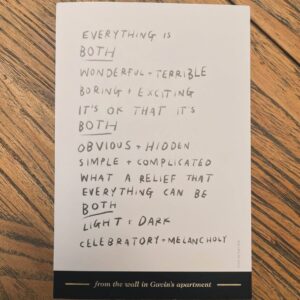 EVERYTHING IS
BOTH
WONDERFUL + TERRIBLE
BORING + EXCITING
IT'S OK THAT IT'S
BOTH
OBVIOUS + HIDDEN
SIMPLE + COMPLICATED
WHAT A RELIEF THAT
EVERYTHING CAN BE
BOTH
LIGHT + DARK
CELEBRATORY + MELANCHOLY
from the wall in Gavin's apartment